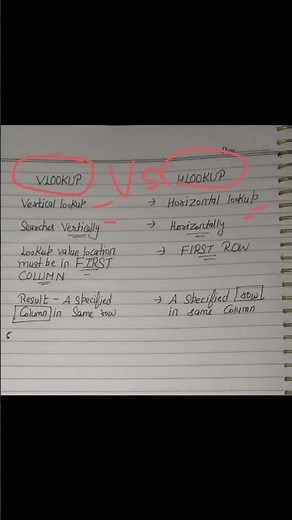 VLOOKUP VS HLOOKUP
Vertical lookup → Horizontal lookup
Searches Vertically → Horizontally
Lookup value location → FIRST ROW
must be in FIRST
COLUMN
Result - A specified → A specified row
Column in same row in same column